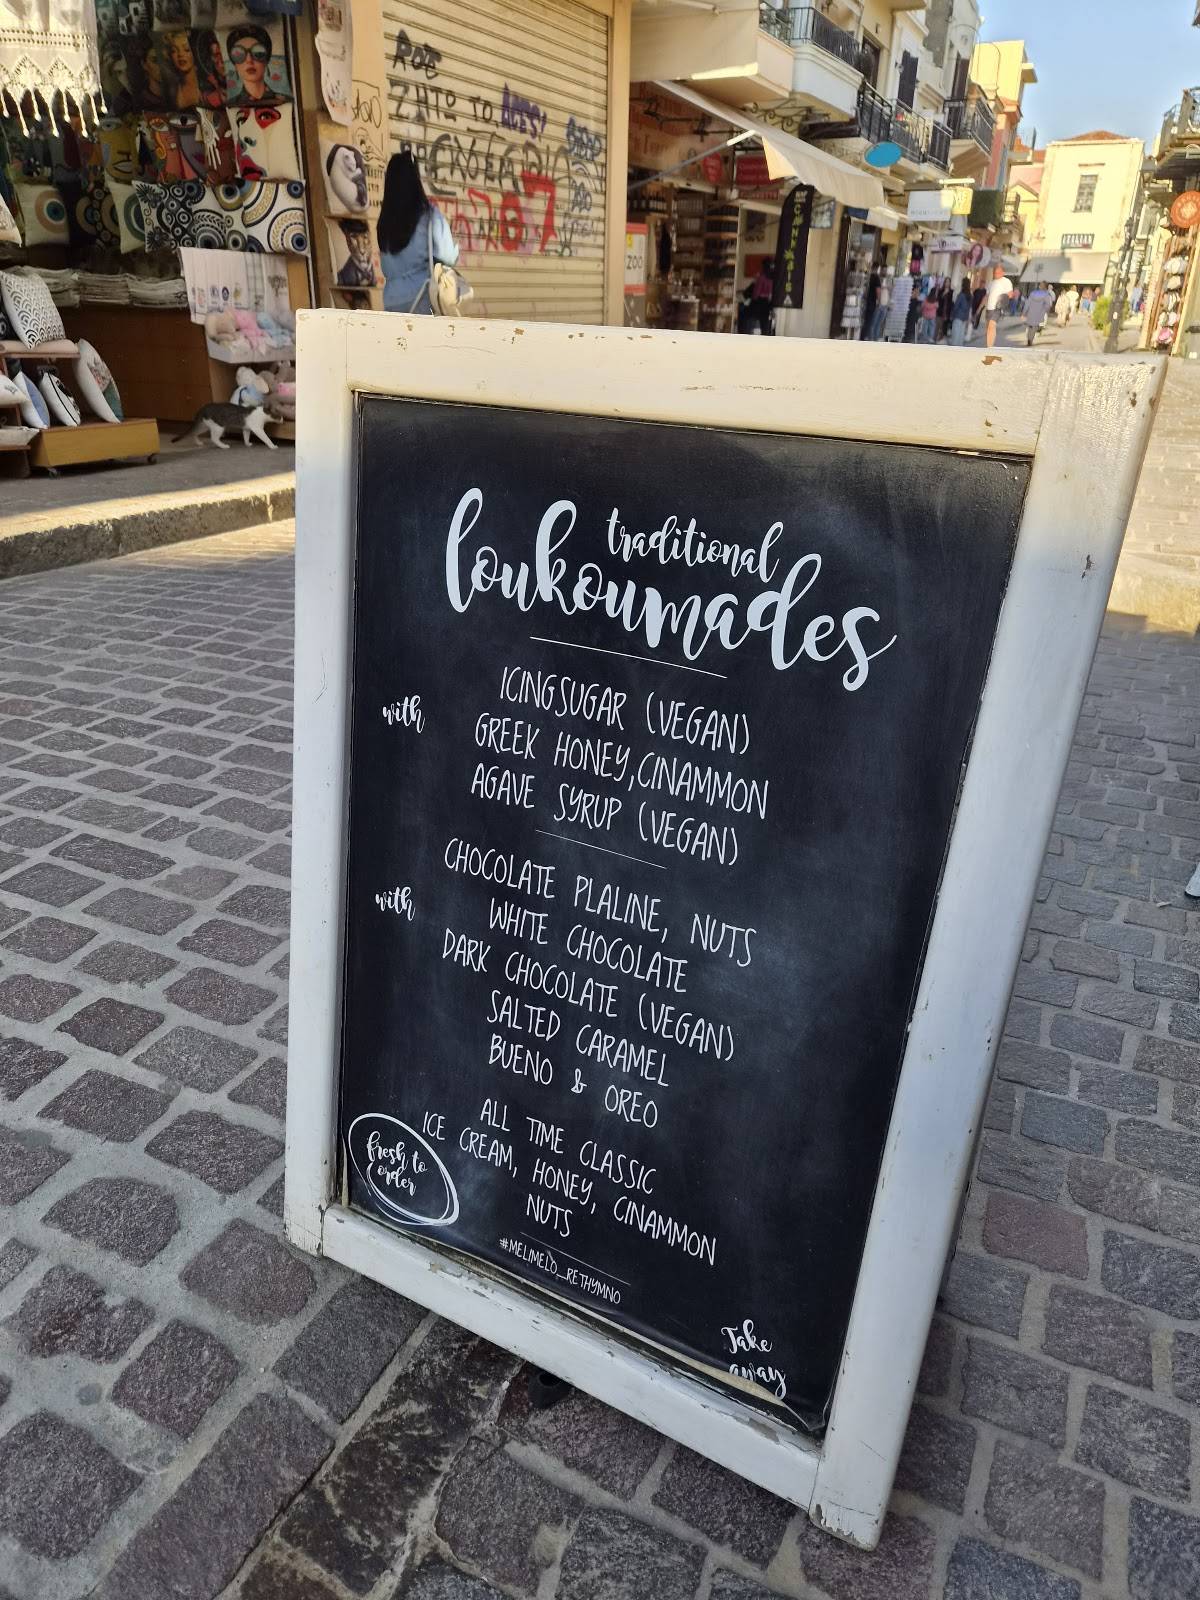 traditional
loukoumades
with
ICINGSUGAR (VEGAN)
GREEK HONEY,CINAMMON
AGAVE SYRUP (VEGAN)
with
CHOCOLATE PLALINE, NUTS
WHITE CHOCOLATE
DARK CHOCOLATE (VEGAN)
SALTED CARAMEL
BUENO & OREO
ALL TIME CLASSIC
ICE CREAM, HONEY, CINAMMON
NUTS
fresh to
order
#MELIMELO_RETHYMNO
Take
away